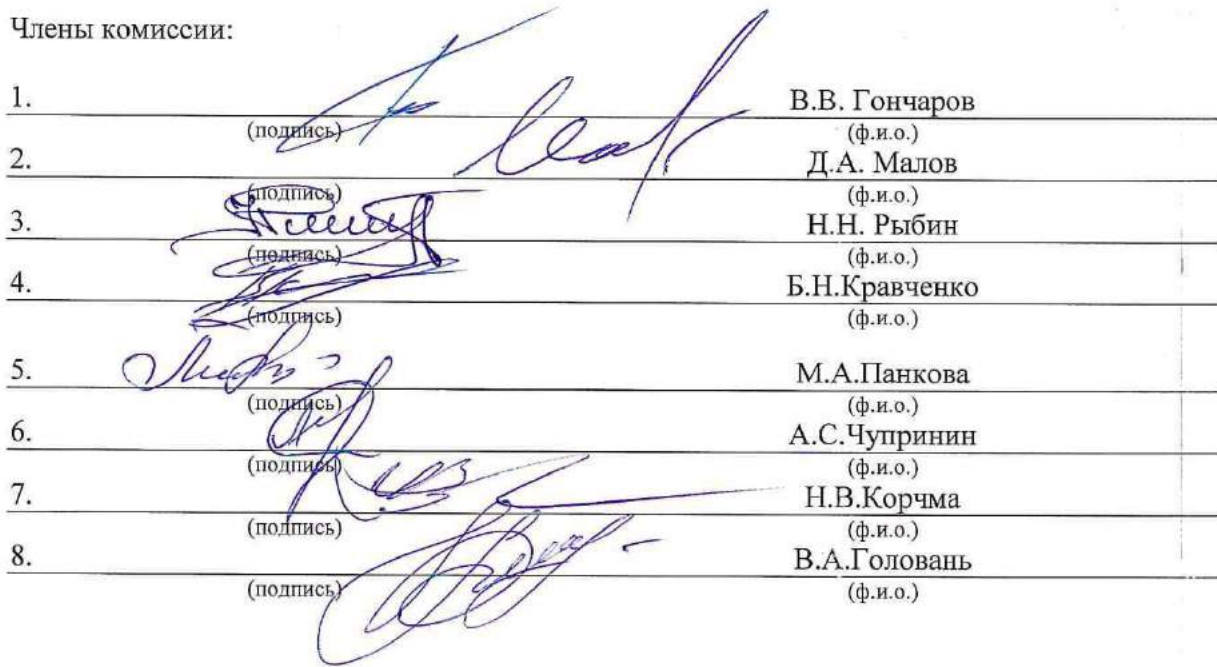 Члены комиссии:
1. В.В. Гончаров
(подпись) (ф.и.о.)
2. Д.А. Малов
(подпись) (ф.и.о.)
3. Н.Н. Рыбин
(подпись) (ф.и.о.)
4. Б.Н.Кравченко
(подпись) (ф.и.о.)
5. М.А.Панкова
(подпись) (ф.и.о.)
6. А.С.Чупринин
(подпись) (ф.и.о.)
7. Н.В.Корчма
(подпись) (ф.и.о.)
8. В.А.Головань
(подпись) (ф.и.о.)